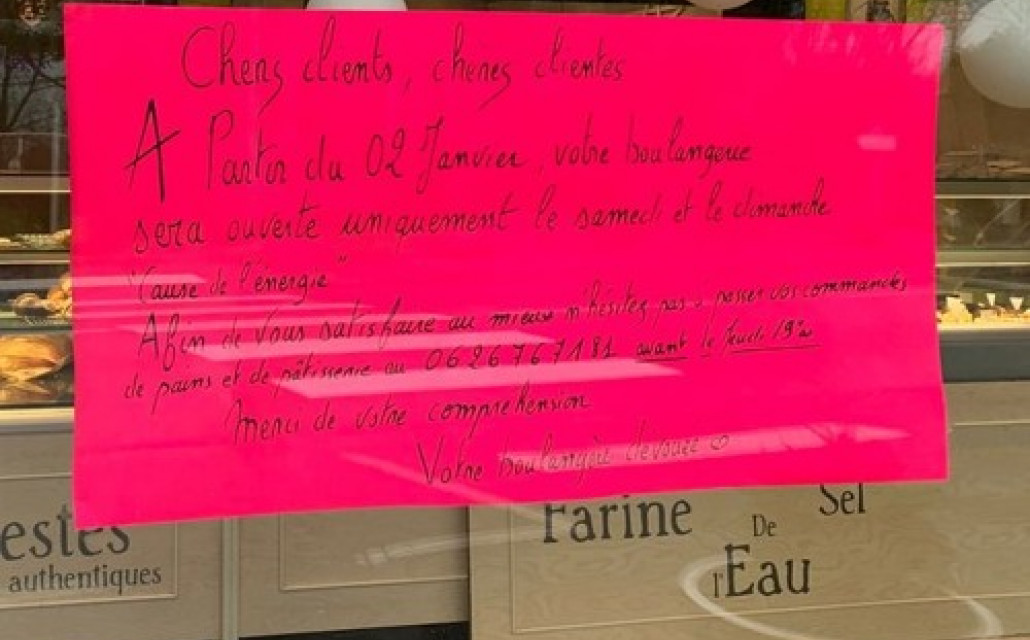 Chers clients, chères clientes
A Partir du 02 Janvier, votre boulangerie
sera ouverte uniquement le samedi et le dimanche
"Cause de l'énergie"
Afin de vous satisfaire au mieux n'hésitez pas à passer vos commandes
de pains et de pâtisserie au 0626767181 avant le Jeudi 19h
Merci de votre compréhension
Votre boulangère dévouée
estes
authentiques
Farine
De
Sel
l'Eau